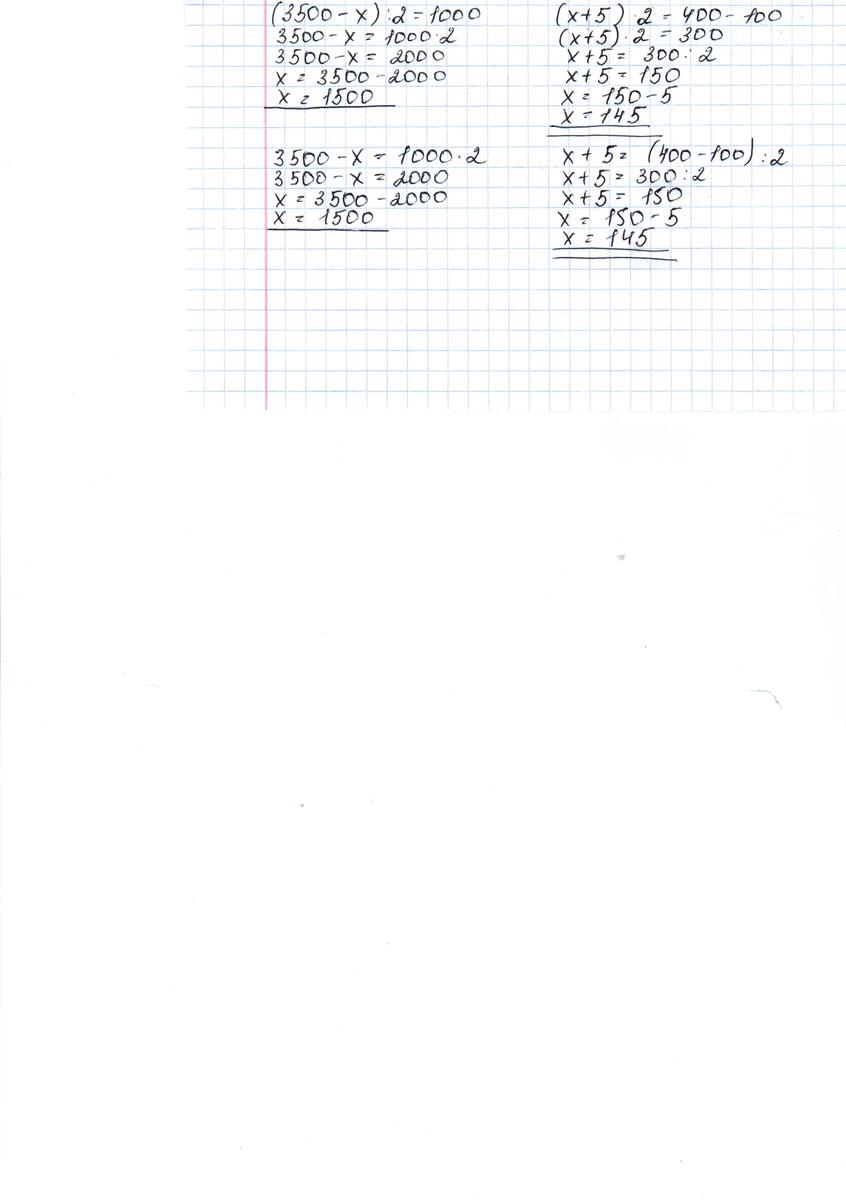 (3500 - x) : 2 = 1000
3500 - x = 1000 · 2
3500 - x = 2000
x = 3500 - 2000
x = 1500
3500 - x = 1000 · 2
3500 - x = 2000
x = 3500 - 2000
x = 1500
(x+5) · 2 = 400 - 100
(x+5) · 2 = 300
x+5 = 300 : 2
x+5 = 150
x = 150 - 5
x = 145
x + 5 = (400 - 100) : 2
x+5 = 300 : 2
x+5 = 150
x = 150 - 5
x = 145